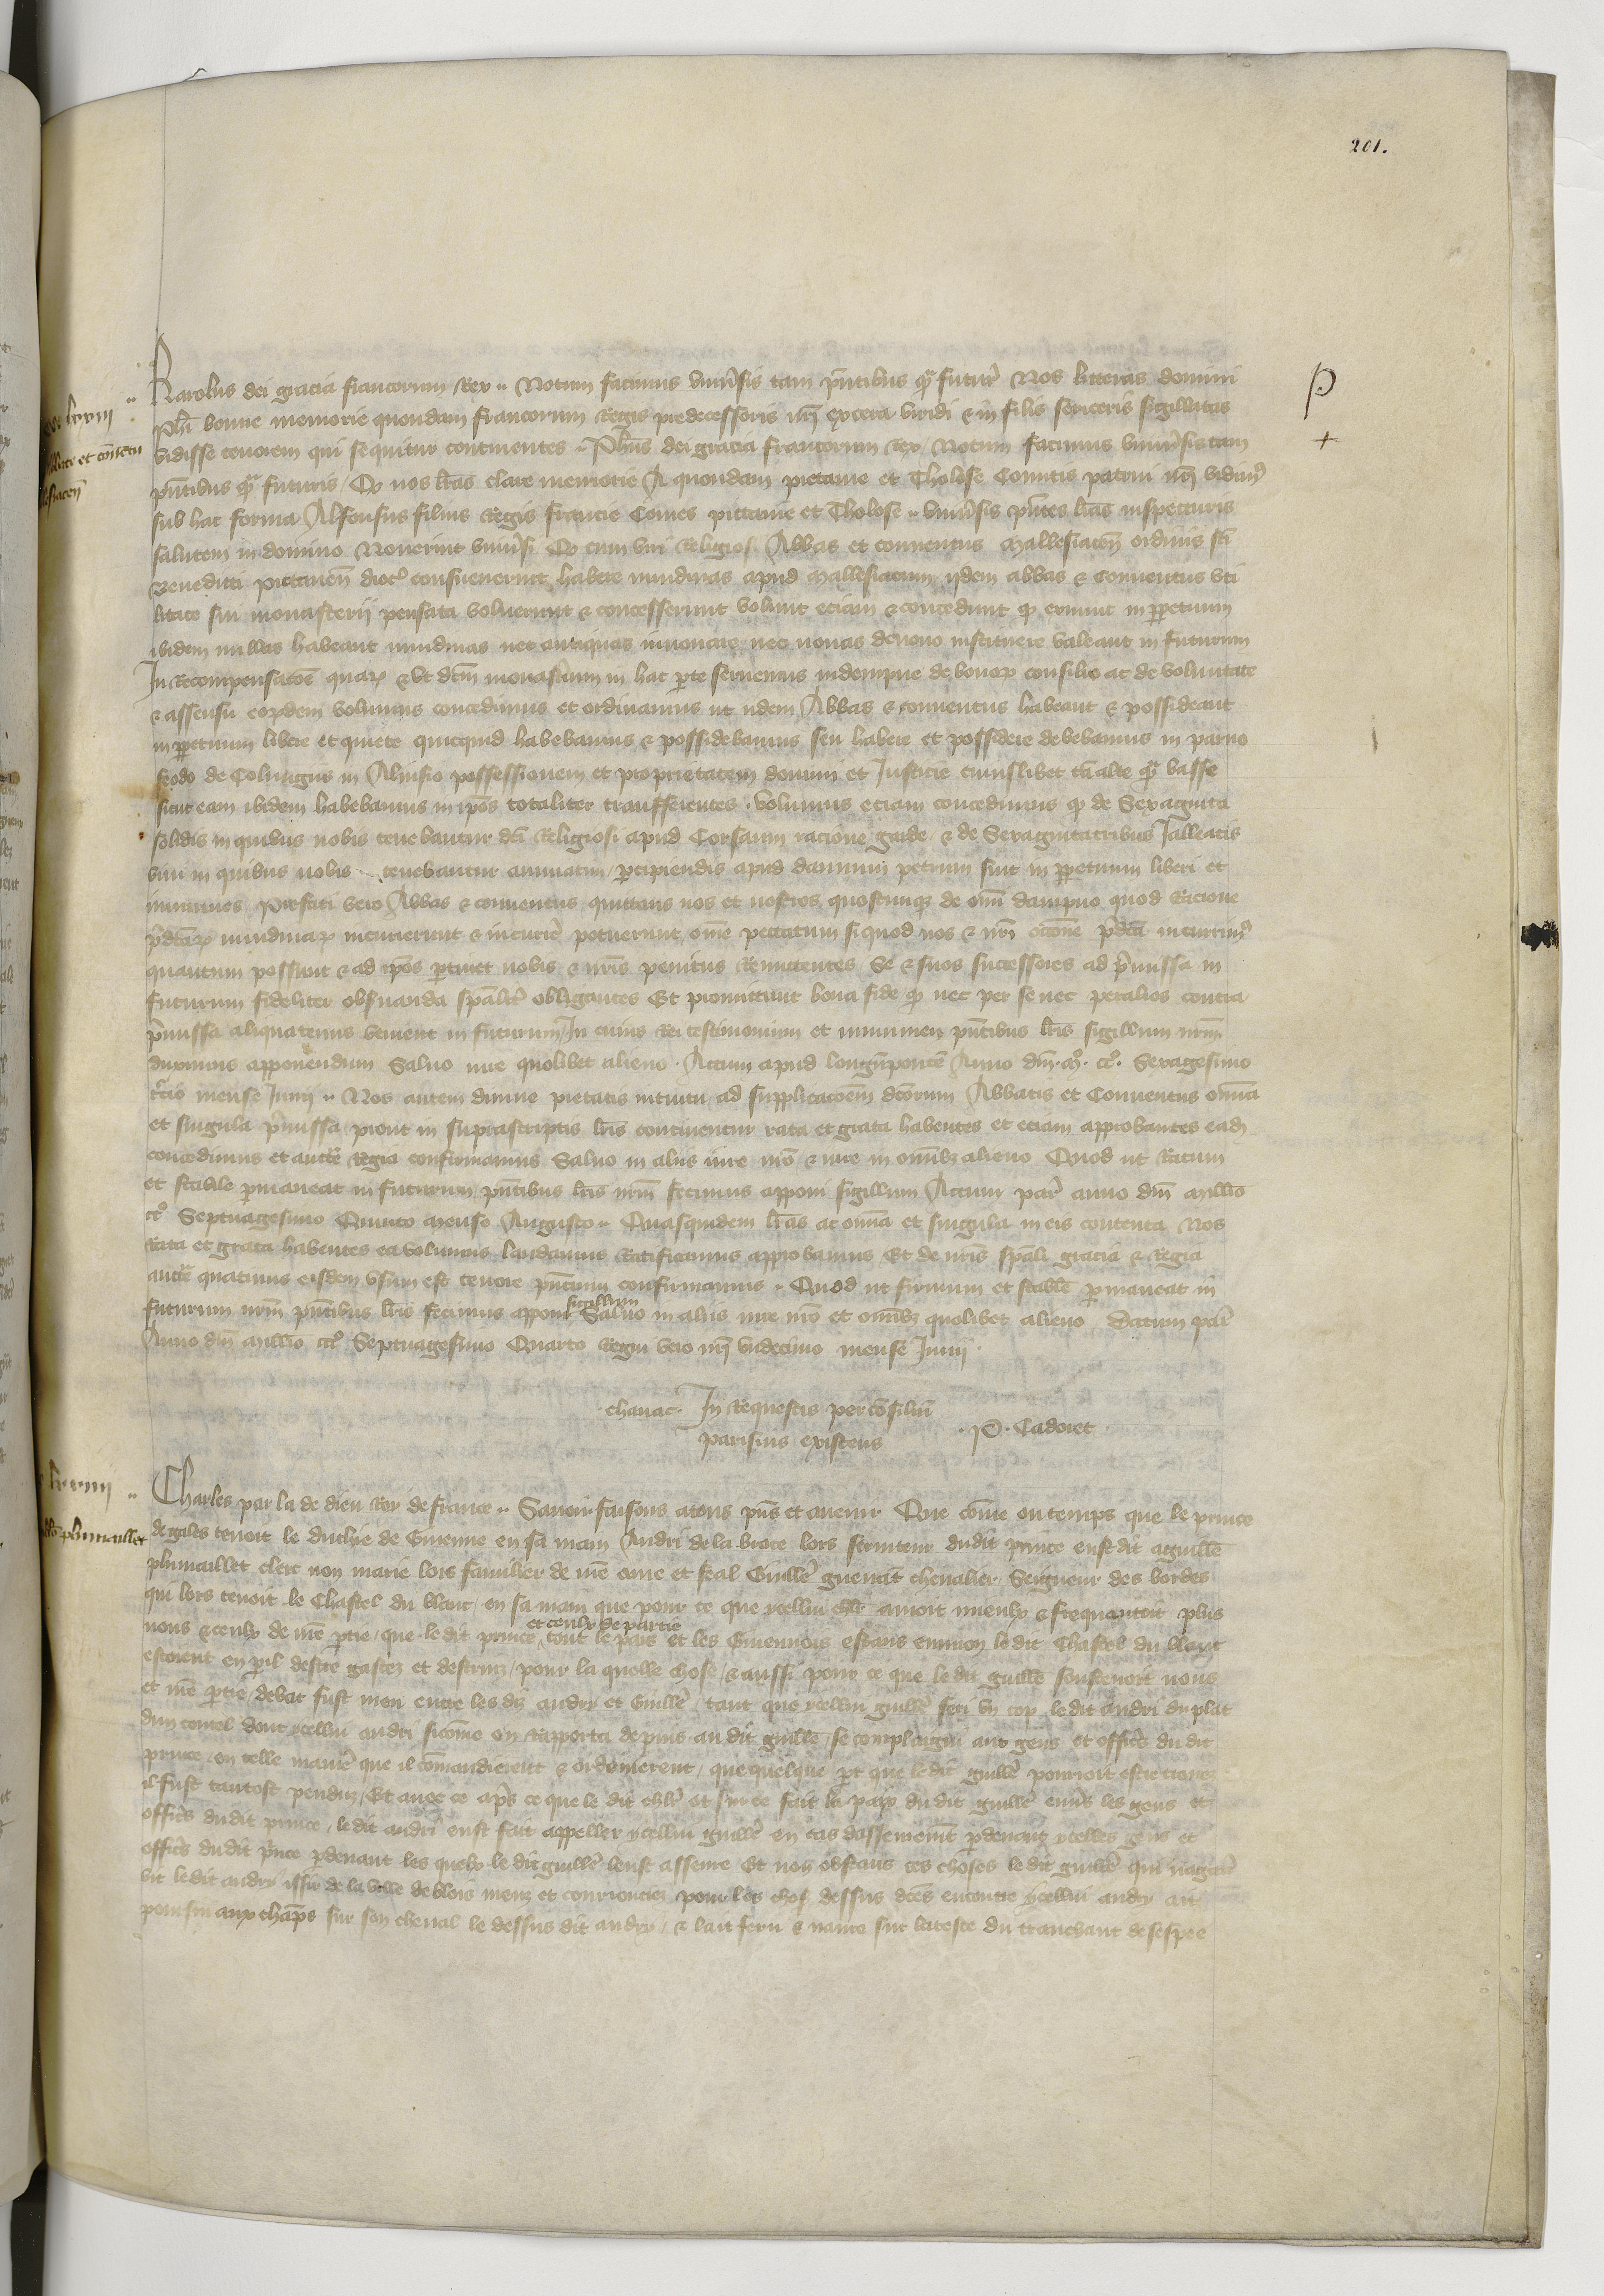 201.
Karolus dei gracia francorum Rex Notum facimus univ̄sis tam p̄ntibus qua̅ futur̄ Nos litteras domini
ph̄i bonne memorie quondam francorum Regis predecessoris nr̄i ex cera viridi & in filis sericeis sigillatas
vidisse tenorem qui sequitur continentes Ph̄us dei gracia francorum Rex Notum facimus univ̄sis tam
p̄ntibus qua̅ futuris / Q nos lr̄as clare memorie A quondam pictavie et Tholose Comitis patrui nr̄i vidim̄
sub hac forma Alfonsus filius Regis francie Comes pictavie et Tholose univ̄sis p̄ntes lr̄as inspecturis
salutem in domino Noverint univ̄si Q cum viri Religiosi Abbas et conventus Mallesiacen̄ ordinis sc̄i
Benedicti pictaven̄ dioc̄ consueverunt habere nundinas apud Mallesiacum ijdem abbas & conventus uti
litate sui monasterij pensata voluerunt & concesserunt volunt eciam & concedunt q̄ ex nunc in p̄petuum
ibidem nullas habeant nundinas nec antiquas innovare nec novas de novo instituere valeant in futurum
In Recompensacōe quar̄ & ut dc̄m monasterium in hac p̄te servemus indempne de bonor̄ consilio ac de voluntate
& assensu eor̄dem volumus concedimus et ordinamus ut iidem Abbas & conventus habeant & possideant
in p̄petuum libere et quiete quicquid habebamus & possidebamus seu habere et possidere debebamus in parvo
feodo de Colungiis in Alnisio possessionem et proprietatem domini et Justicie cuiuslibet tā alte qua̅ basse
sicut eam ibidem habebamus in ip̄os totaliter transferentes . volumus eciam concedimus q̄ de Sexaginta
solidis in quibus nobis tenebantur dc̄i Religiosi apud Corsaum racione garde & de Sexagintatribus Jalleatis
vini in quibus nobis tenebantur annuatim p̄cipiendis apud dannum petrum sint in p̄petuum liberi et
immunes Prefati vero Abbas & conventus quittans nos et nostros quoscunq̄ de om̄i dampno quod Racione
p̄dc̄ar̄ nundinar̄ incurrerunt & incurrer̄ potuerunt om̄e peccatum si quod nos & nr̄i occōne p̄dc̄a incurrim̄
quantum possunt & ad ip̄os p̄tinet nobis & nr̄is penitus Remittentes Se & suos successores ad p̄missa in
futurum fideliter obs̄vanda sp̄alit̄ obligantes Et promittunt bona fide q̄ nec per se nec per alios contra
p̄missa aliquatenus venient in futurum / In cuius Rei testimonium et munimen p̄ntibus lr̄is sigillum nr̄m
duximus apponendum Salvo iure quolibet alieno . Actum apud longūpontē Anno dn̄i . m̄o . cc̄o . Sexagesimo
t̄cio mense Junij Nos autem divine pietatis intuitu ad supplicacōem dc̄orum Abbatis et Conventus om̄ia
et singula p̄missa prout in suprascriptis lr̄is continentur rata et grata habentes et eciam approbantes ead̄
concedimus et auct̄e Regia confirmamus Salvo in aliis iure nr̄o & iure in omib̄z alieno Quod ut Ratum
et stabile p̄maneat in futurum p̄ntibus lr̄is nr̄m fecimus apponi sigillum Actum par̄ anno dn̄i millīo
cc̄o Septuagesimo Quinto mense Augusto Quasquidem lr̄as ac om̄ia et singula in eis contenta Nos
Rata et grata habentes ea volumus laudamus Ratificamus approbamus Et de nr̄is sp̄ali gracia & Regia
auct̄e quatinus eisdem usum est tenore p̄ncium confirmamus Quod ut firmum et stabile p̄maneat in
futurum nr̄m p̄ntibus lr̄is fecimus apponi sigillum Salvo in aliis iure nr̄o et omib̄z quolibet alieno Datum par̄
Anno dn̄i millīo ccc̄o Septuagesimo Quarto Regni vero nr̄i undecimo mense Junij
chanac . In Requestis per cōsiliū
parisius existens . P . Cadoret
Charles par la de dieu Roy de france Savoir faisons a tous p̄ns et avenir Que cōme ou temps que le prince
de gales tenoit le duchie de Guienne en sa main Andri de la broce lors serviteur dudit prince eust dit a guillē
plumaillet clerc non marie lors familier de nr̄e ame et feal Guill̄e guenāt chevalier Seigneur des bordes
qui lors tenoit le Chastel du blanc en sa main que pour ce que ycellui chlr̄ amoit mieulx & frequentoit plus
nous & ceulx de nr̄e p̄tie / que le dit prince et ceulx de partie tout le pais et les Guiennois estans environ le dit Chastel du blanc
estoient en p̄il destre gastez et destruiz / pour la quelle chose / & aussi pour ce que le dit guillē soustenoit nous
et nr̄e p̄tie / debat fust meu entre les diz andry et Guill̄e / tant que ycellui guill̄e feri un cop le dit andri du plat
dun coutel dont ycellui andri sicōme on Rapporta depuis au dit guillē / se complaigni aux gens et offic̄s du dit
prince en telle manier̄ que il cōmandierent & ordenerent / que quelque p̄t que le dit guill̄e pourroit estre trouve
il fust tantost penduz / Et avec ce ap̄s ce que le dit chlr̄ ot sur ce fait la paix du dit guill̄e env̄s les gens et
offic̄s dudit prince / le dit andri eust fait appeller ycellui guill̄e en cas dassemenēt p̄devant ycelles gens et
offic̄s dudit p̄nce p̄devant les quelx le dit guill̄e leust asseure Et non obstans ces choses le dit guill̄e qui nagair̄
vit ledit andry issir de la ville de blois meuz et courrouciez pour les choses dessus dc̄es encontre ycellui andry ait
poursui aux chāps sur son cheval le dessus dit andry / & lait feru & navre sur la teste du tranchant de sespee